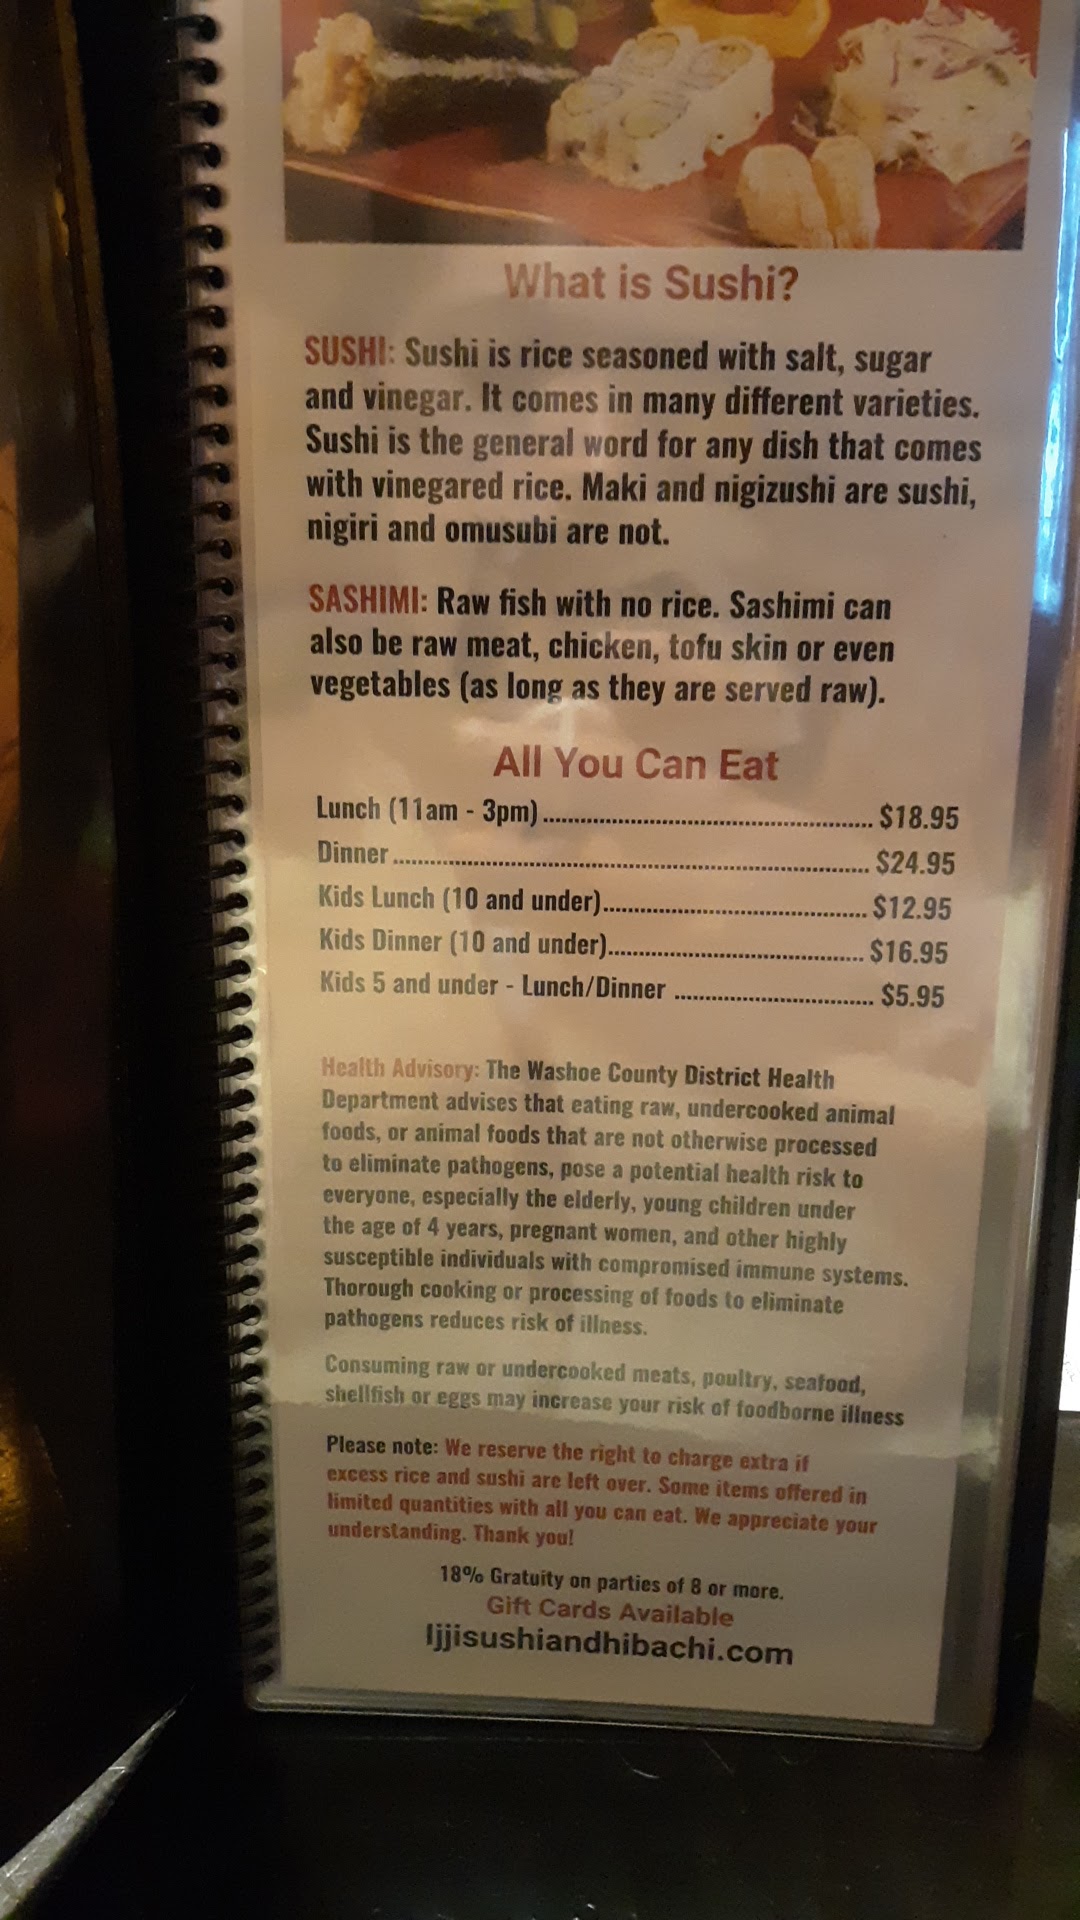 What is Sushi?
SUSHI: Sushi is rice seasoned with salt, sugar
and vinegar. It comes in many different varieties.
Sushi is the general word for any dish that comes
with vinegared rice. Maki and nigizushi are sushi,
nigiri and omusubi are not.
SASHIMI: Raw fish with no rice. Sashimi can
also be raw meat, chicken, tofu skin or even
vegetables (as long as they are served raw).
All You Can Eat
Lunch (11am - 3pm) ........ $18.95
Dinner ........ $24.95
Kids Lunch (10 and under)........ $12.95
Kids Dinner (10 and under)........ $16.95
Kids 5 and under - Lunch/Dinner ........ $5.95
Health Advisory: The Washoe County District Health
Department advises that eating raw, undercooked animal
foods, or animal foods that are not otherwise processed
to eliminate pathogens, pose a potential health risk to
everyone, especially the elderly, young children under
the age of 4 years, pregnant women, and other highly
susceptible individuals with compromised immune systems.
Thorough cooking or processing of foods to eliminate
pathogens reduces risk of illness.
Consuming raw or undercooked meats, poultry, seafood,
shellfish or eggs may increase your risk of foodborne illness
Please note: We reserve the right to charge extra if
excess rice and sushi are left over. Some items offered in
limited quantities with all you can eat. We appreciate your
understanding. Thank you!
18% Gratuity on parties of 8 or more.
Gift Cards Available
Ijjisushiandhibachi.com